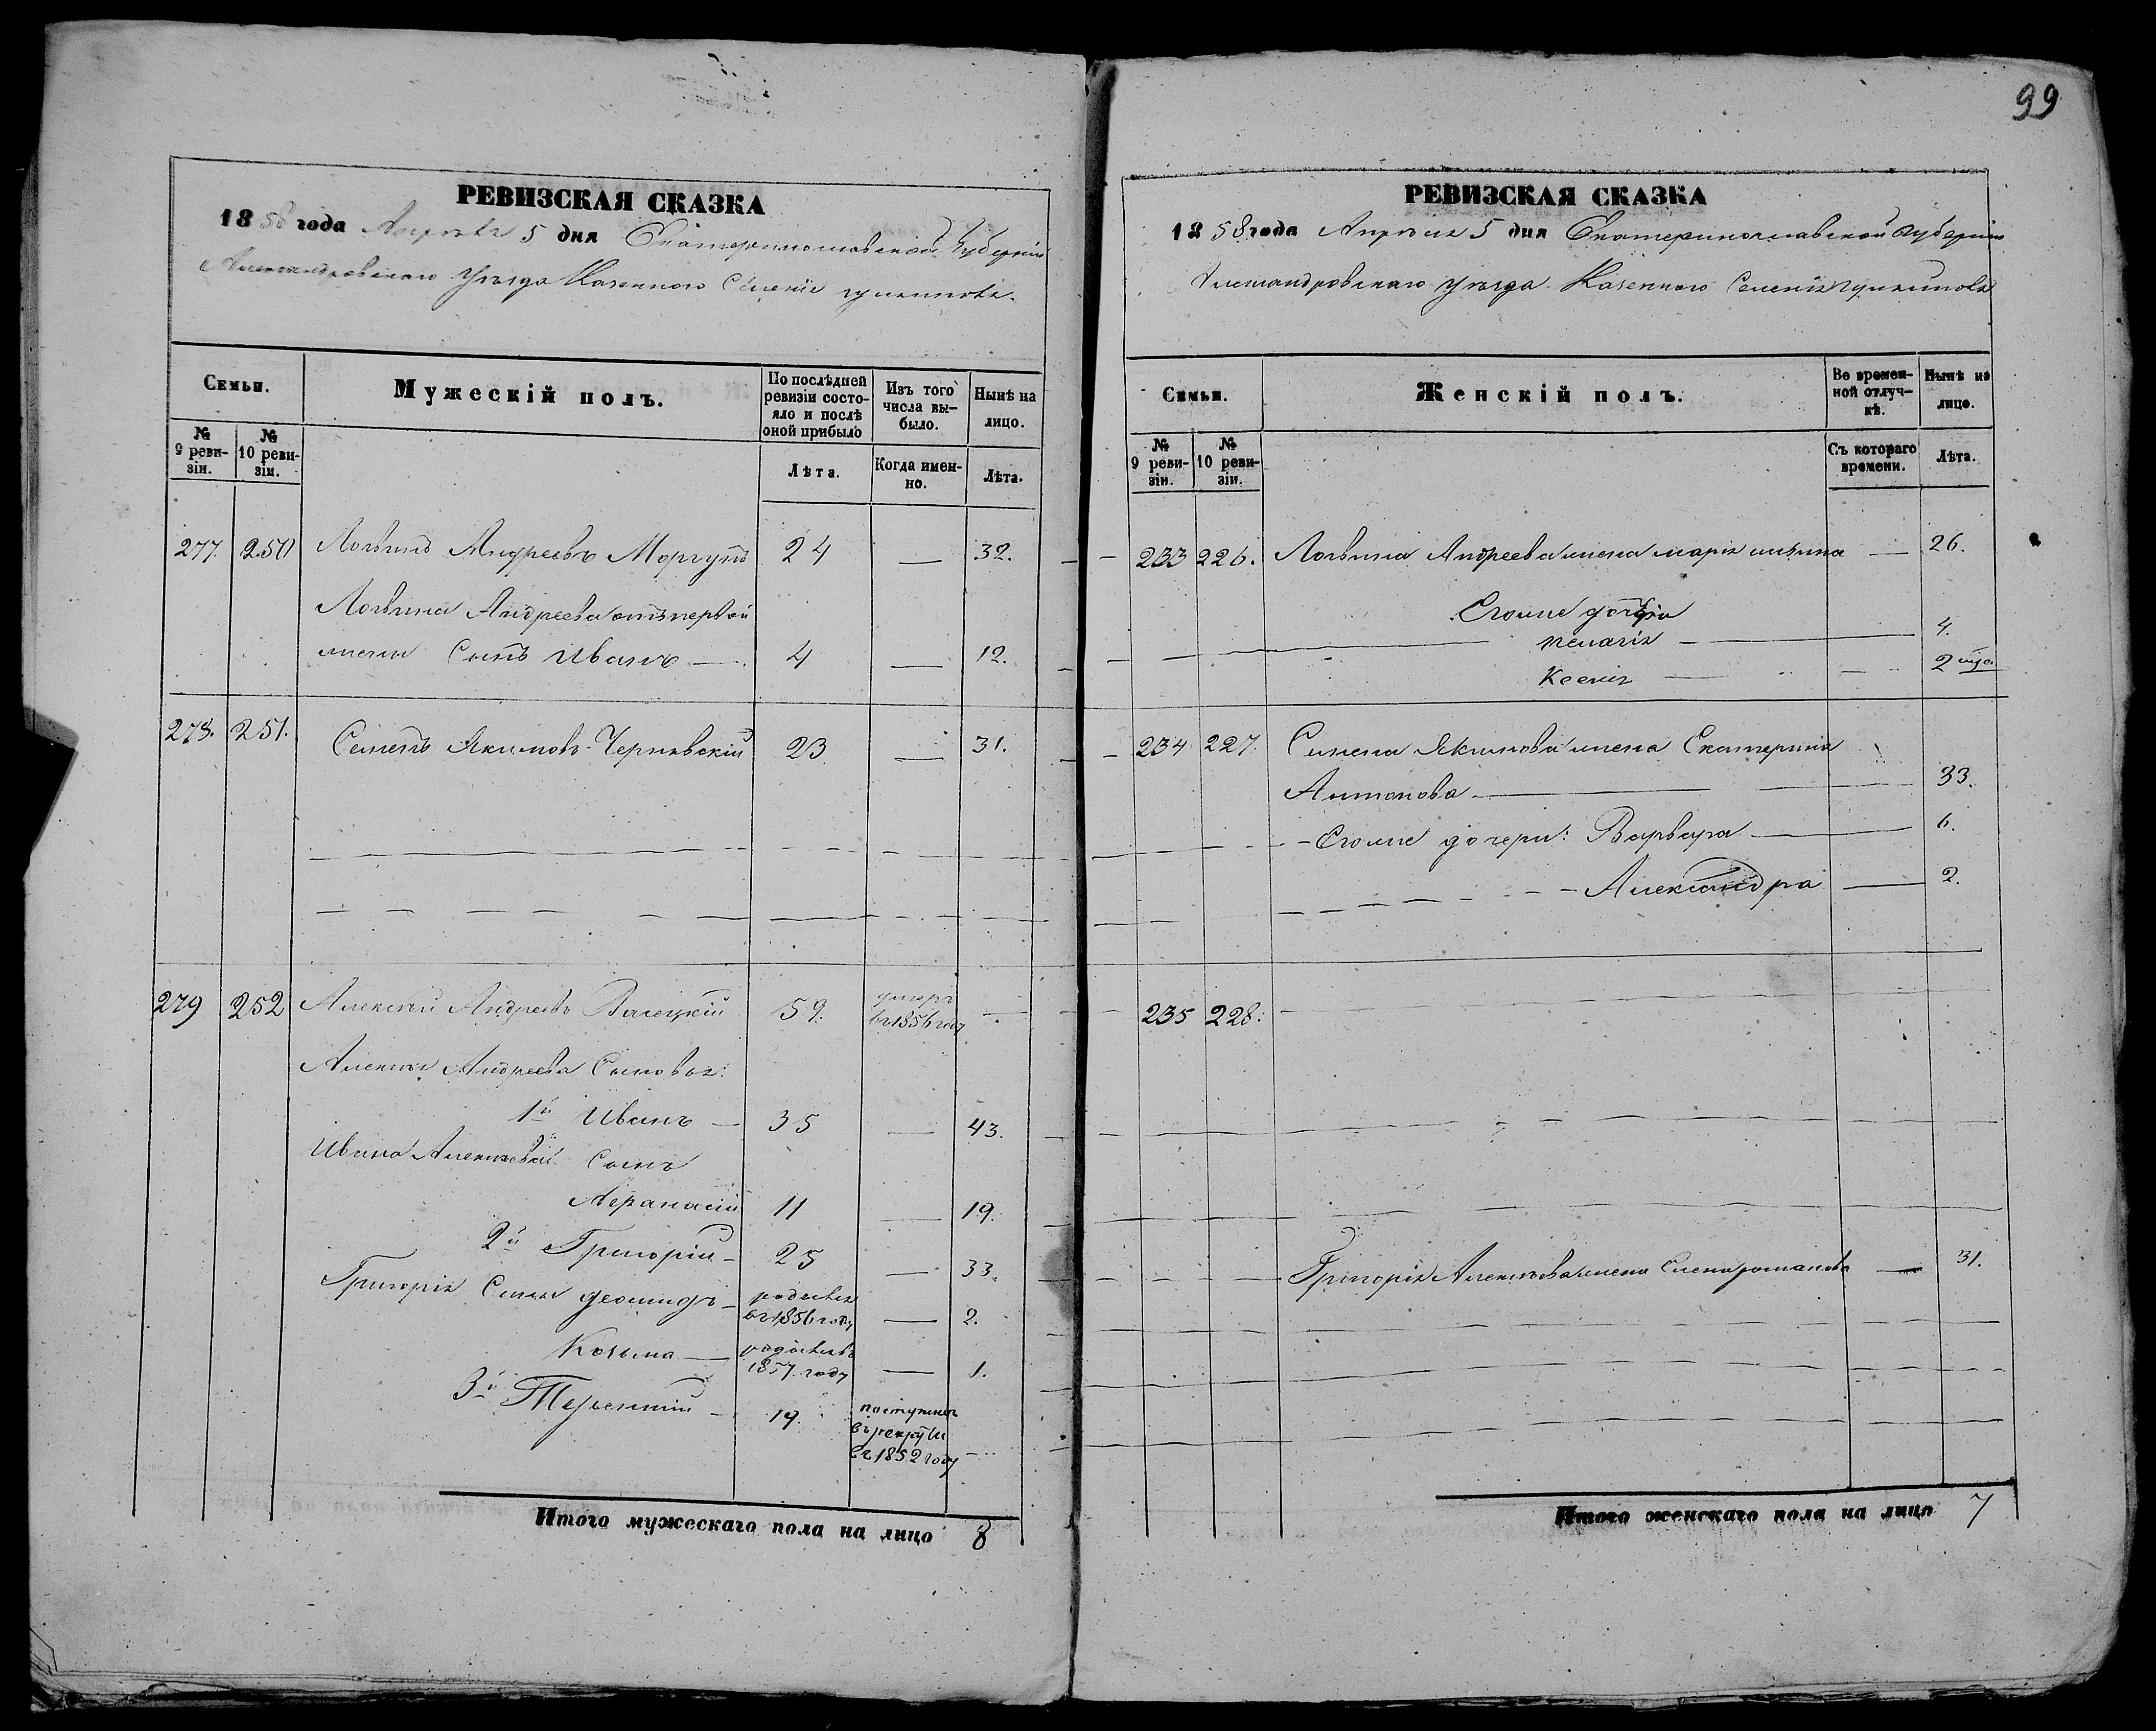 99
РЕВИЗСКАЯ СКАЗКА
1858 года Апреля 5 дня Екатеринославской Губерніи
Александровскаго Уезда Казенного Селенія
Семьи.
Мужескій полъ.
По послѣдней ревизіи состояло и послѣ оной прибыло
Изъ того числа выбыло.
Нынѣ на лицо.
№ 9 ревизіи.
№ 10 ревизіи.
Лѣта.
Когда именно.
Лѣта.
277. 250 Логвинъ Андреевъ Моргунъ 24 — 32.
Логвина Андреева отъ первой
жены Сынъ Иванъ — 4 — 12.
278. 251. Семенъ Якимовъ Чернявскій 23 — 31.
279 252 Алексѣй Андреевъ 59. умеръ въ 1856 году —
Алексѣя Андреева Сыновья:
1й Иванъ — 35 — 43.
Ивана Алексѣева Сынъ
Афанасій 11 — 19.
2й Григорій — 25 — 33.
Григорія Сыны — родился въ 1856 году — 2.
Козьма — родился въ 1857 году — 1.
3й Терентій — 19. поступилъ въ рекруты въ 1852 году —
Итого мужескаго пола на лицо 8
РЕВИЗСКАЯ СКАЗКА
1858 года Апреля 5 дня Екатеринославской Губерніи
Александровскаго Уезда Казенного Селенія
Семьи.
Женскій полъ.
Во временной отлучкѣ.
Нынѣ на лицо.
№ 9 ревизіи.
№ 10 ревизіи.
Съ котораго времени.
Лѣта.
233 226. Логвина Андреева жена Марія — 26.
Егоже дочери
Пелагія — 4.
Ксенія — 2
234 227. Семена Якимова жена Екатерина
Антонова — 33.
Егоже дочери: Варвара — 6.
Александра — 2.
235 228.
Григорія Алексѣева жена Елена Романова — 31.
Итого женскаго пола на лицо 7